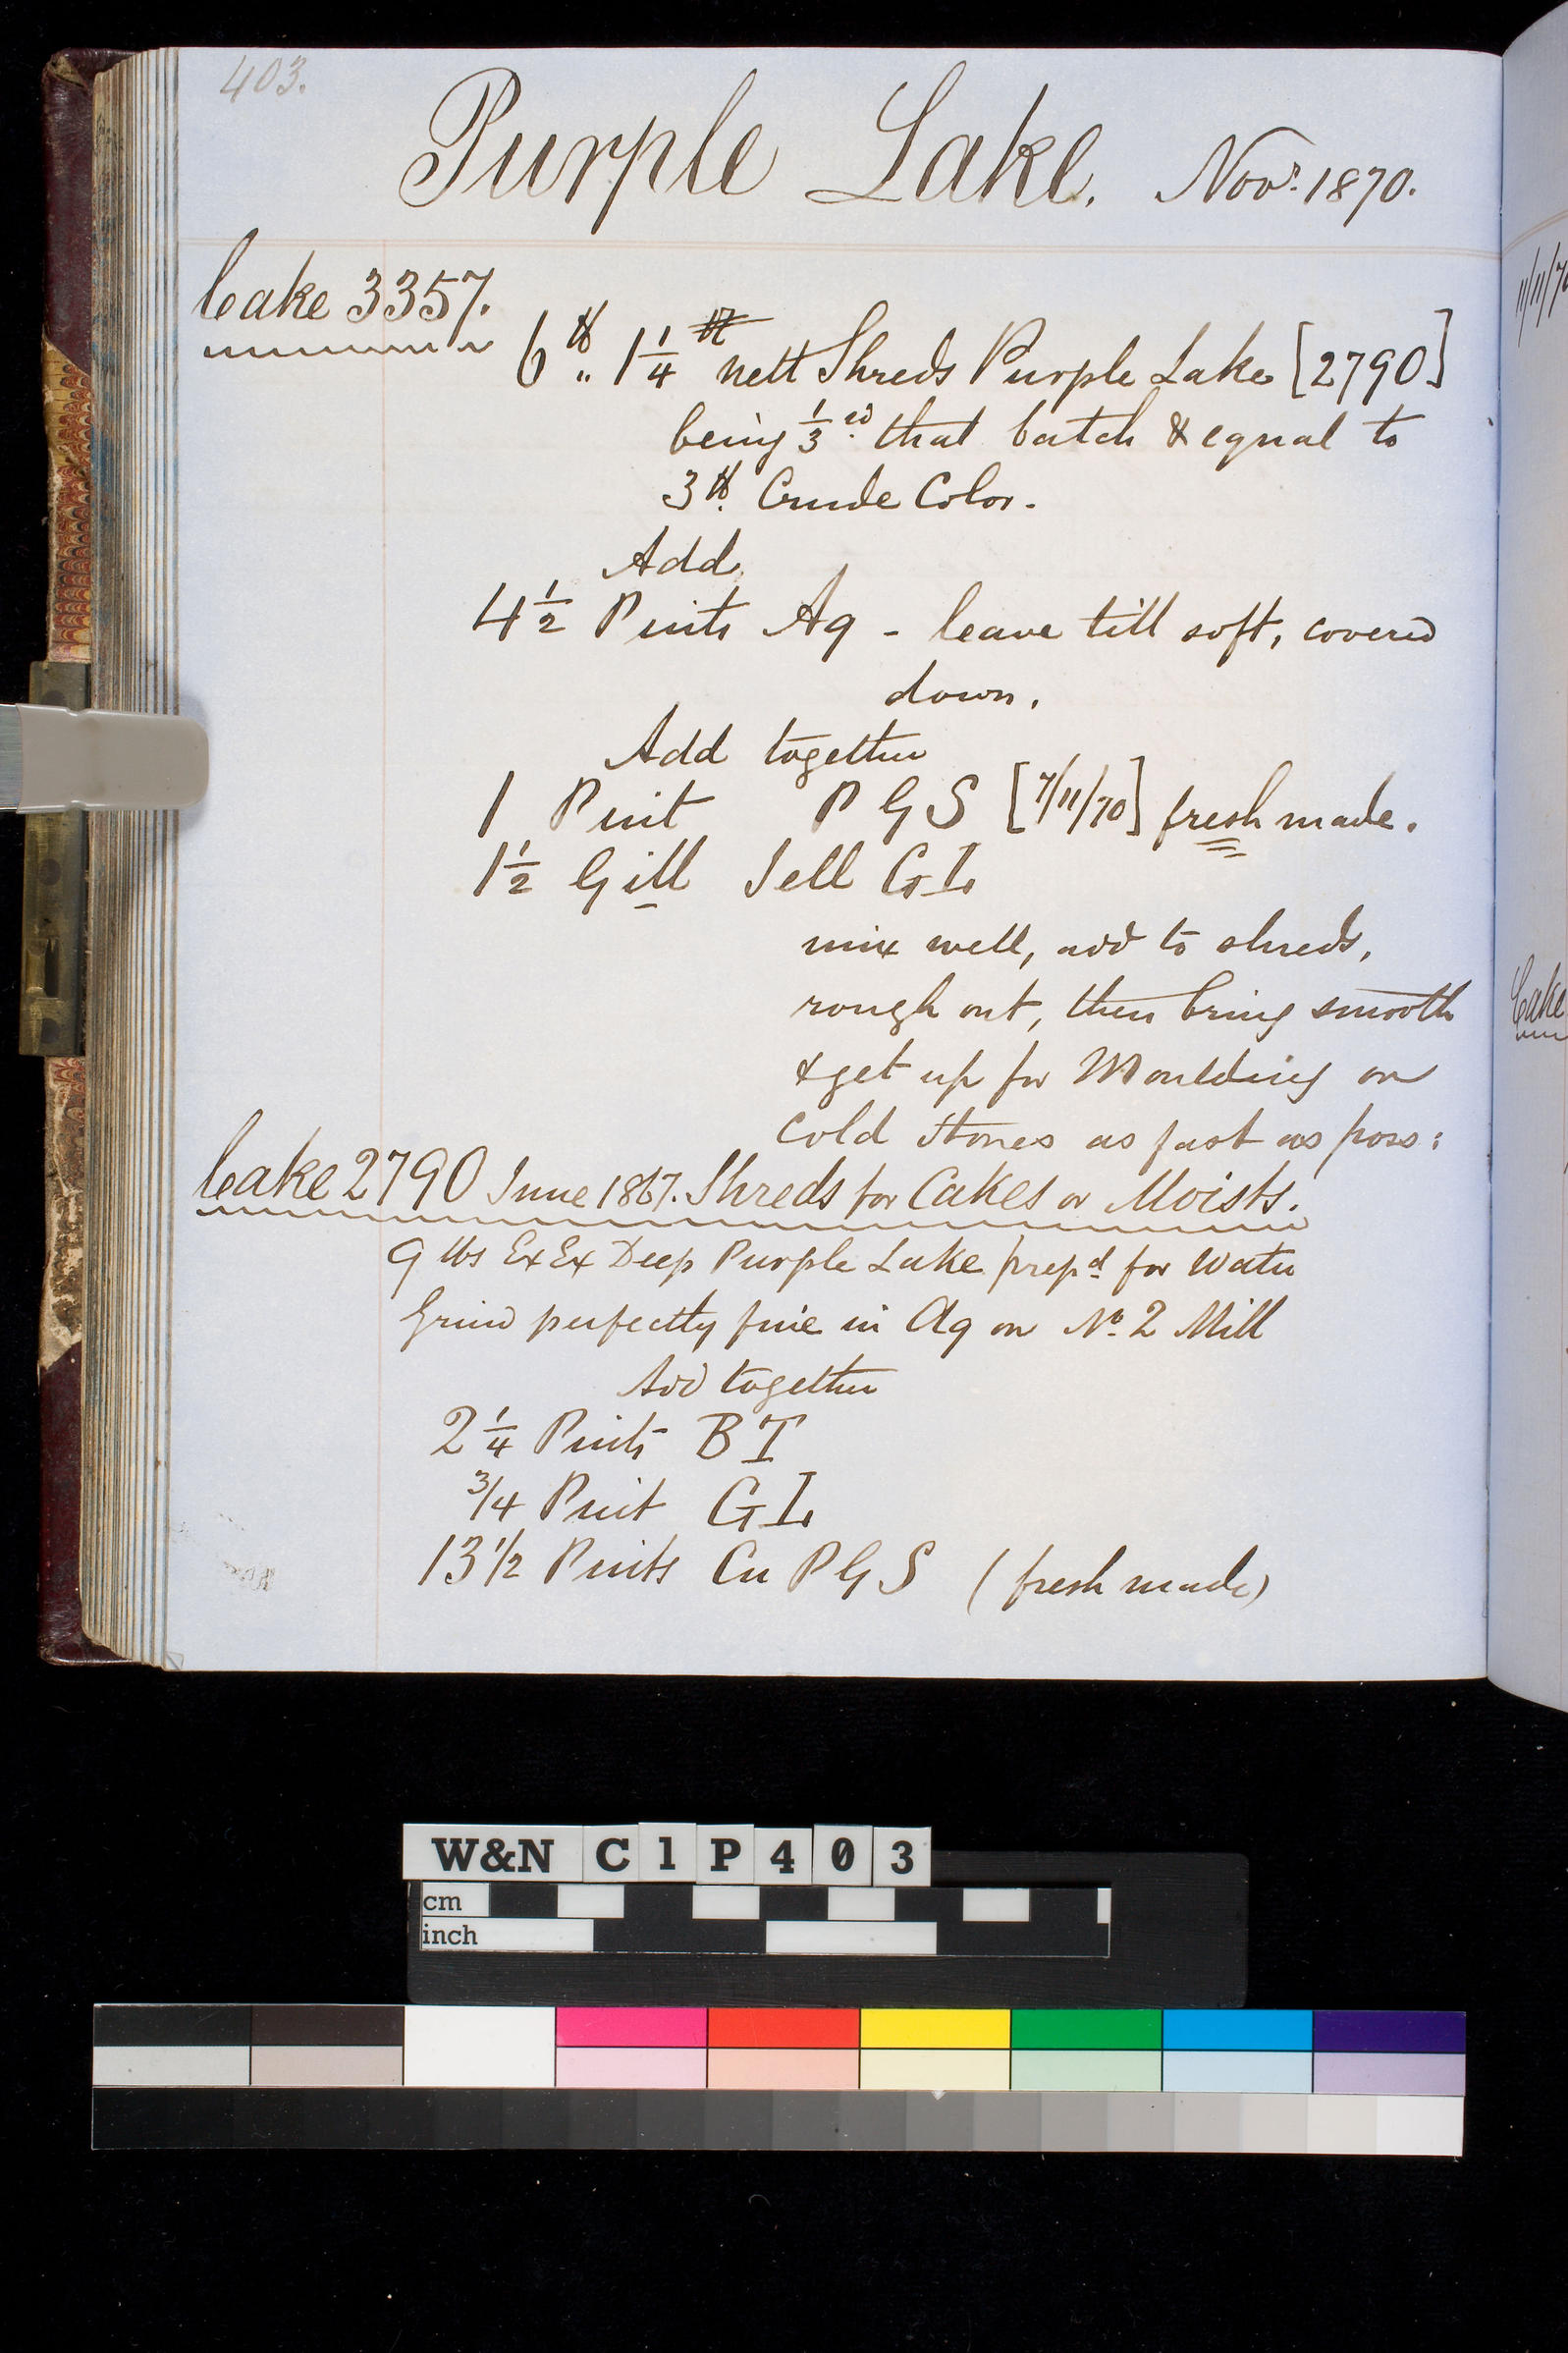 403.
Purple Lake. Novr. 1870.
Cake 3357.
6 lb „ 1 1/4 nett Shreds Purple Lake [2790]
being 1/3rd that batch & equal to
3 lb Crude Color.
Add
4 1/2 Pints Aq - leave till soft, covered
down.
Add together
1 Pint P G S [7/11/70] fresh made.
1 1/2 Gill Jell GL
mix well, add to shreds,
rough out, then bring smooth
& get up for Moulding on
Cold Stones as fast as poss:
Cake 2790 June 1867. Shreds for Cakes or Moists.
9 lbs Ex Ex Deep Purple Lake prepd for Water
Grind perfectly fine in Aq on No. 2 Mill
Add together
2 1/4 Pints BT
3/4 Pint GL
13 1/2 Pints Cu P G S (fresh made)
11/11/7
Cake
W&N C1P403
cm
inch